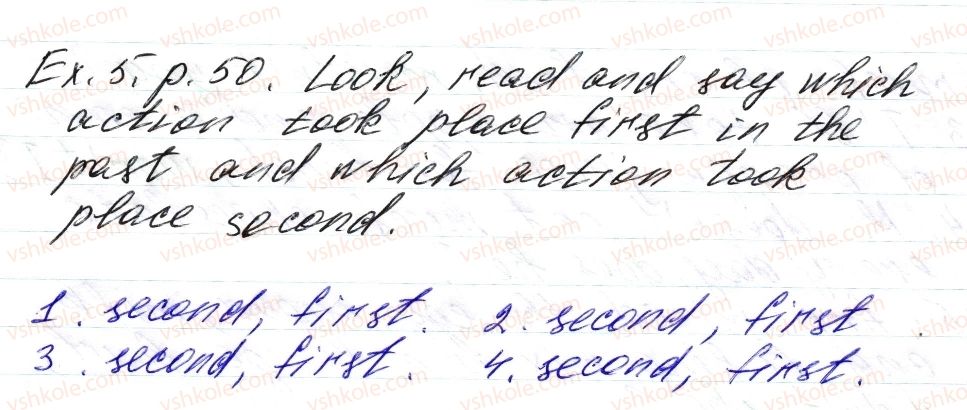 Ex. 5. p. 50. Look, read and say which
action took place first in the
past and which action took
place second.
1. second, first. 2. second, first.
3. second, first. 4. second, first.